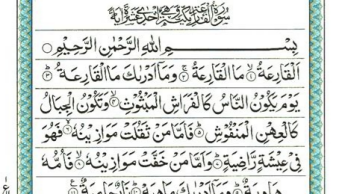 سُورَةُ الْقَارِعَةِ مَكِّيَّةٌ وَهِيَ إِحْدَى عَشْرَةَ آيَةً
بِسْمِ اللهِ الرَّحْمٰنِ الرَّحِيْمِ
اَلْقَارِعَةُ ۙ مَا الْقَارِعَةُ ۚ وَمَآ اَدْرٰىكَ مَا الْقَارِعَةُ ۗ
يَوْمَ يَكُوْنُ النَّاسُ كَالْفَرَاشِ الْمَبْثُوْثِ ۙ وَتَكُوْنُ الْجِبَالُ
كَالْعِهْنِ الْمَنْفُوْشِ ۗ فَاَمَّا مَنْ ثَقُلَتْ مَوَازِيْنُهٗ ۙ فَهُوَ
فِيْ عِيْشَةٍ رَّاضِيَةٍ ۗ وَاَمَّا مَنْ خَفَّتْ مَوَازِيْنُهٗ ۙ فَاُمُّهٗ